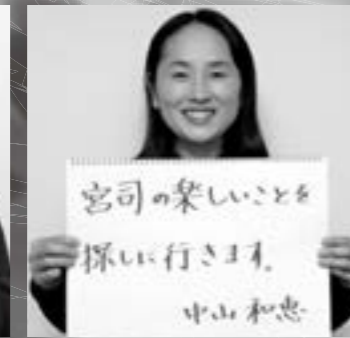 宮司の楽しいことを
探しに行きます。
中山 和恵